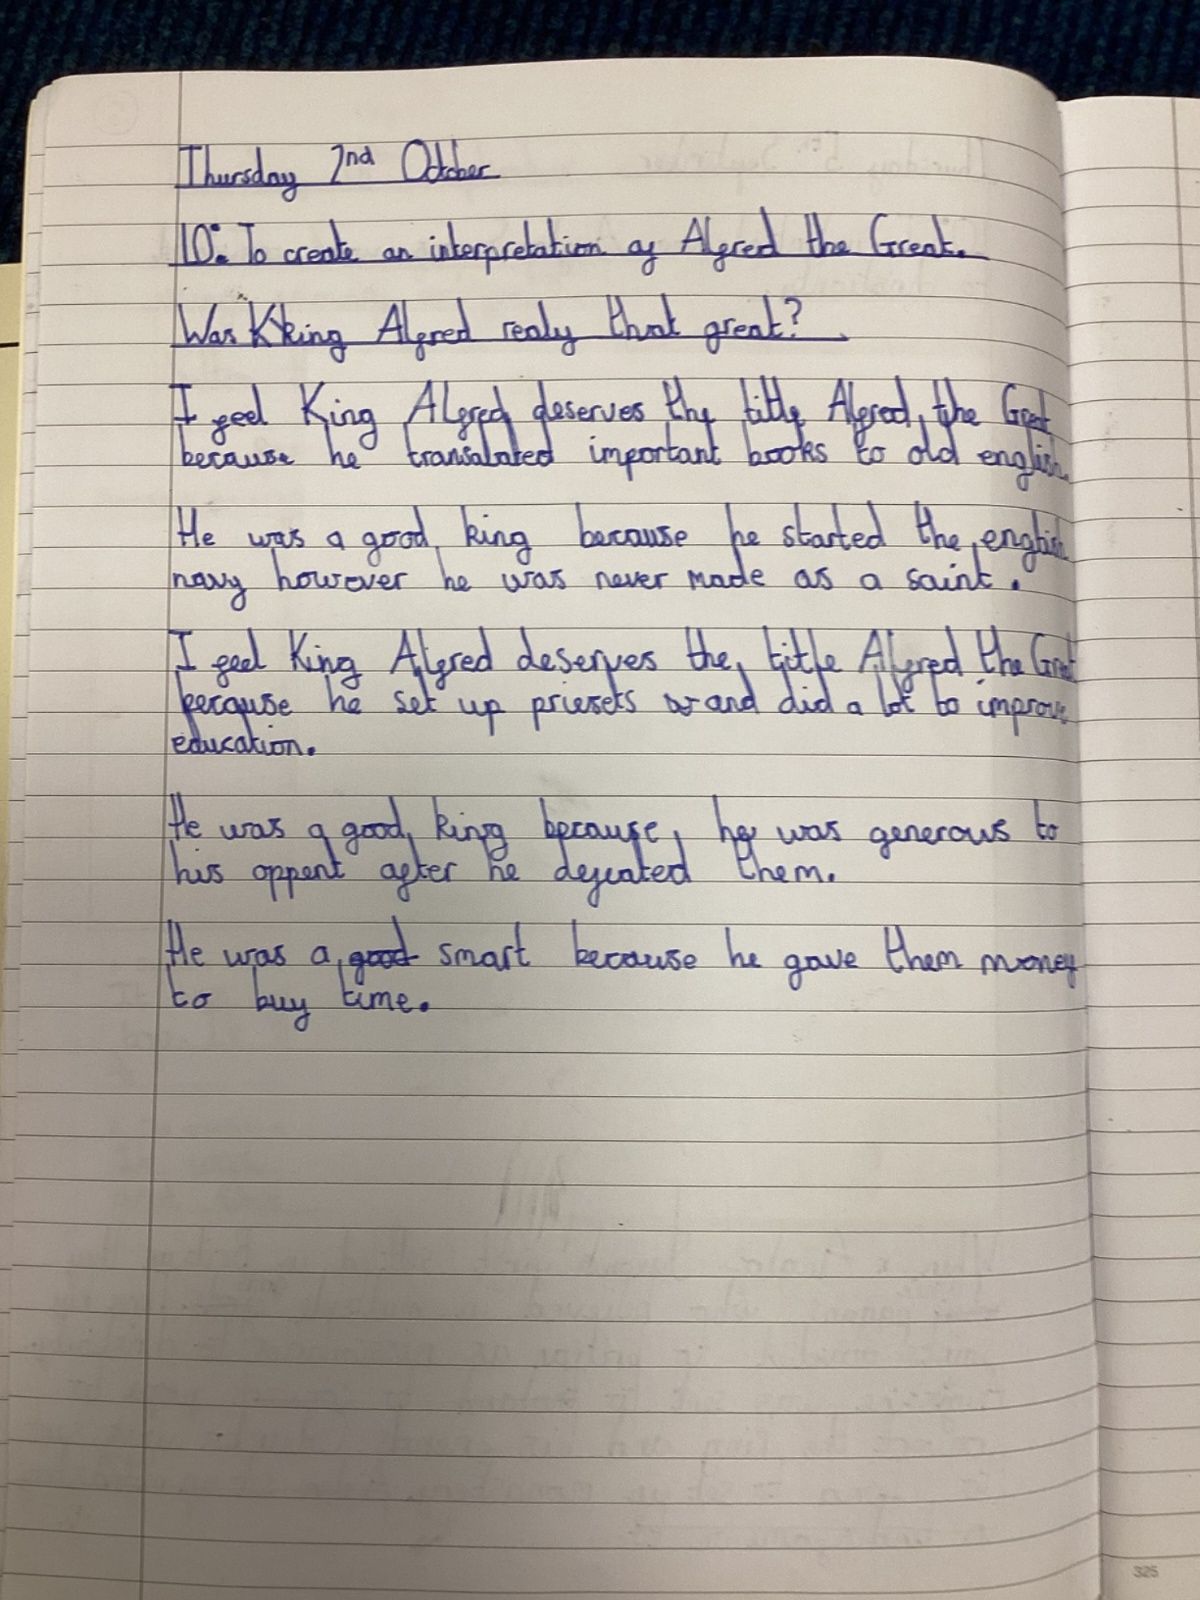 Thursday 2nd October
LO: To create an interpretation of Alfred the Great.
Was King Alfred realy that great?
I feel King Alfred deserves the title Alfred, the Great
because he transalated important books to old english
He was a good, king because he started the english
navy however he was never made as a saint.
I feel King Alfred deserves the, title Alfred the Great
because he set up priesets and did a lot to improve
education.
He was a good, king because, he was generous to
his oppent after he defeated them.
He was a good smart because he gave them money
to buy time.
325